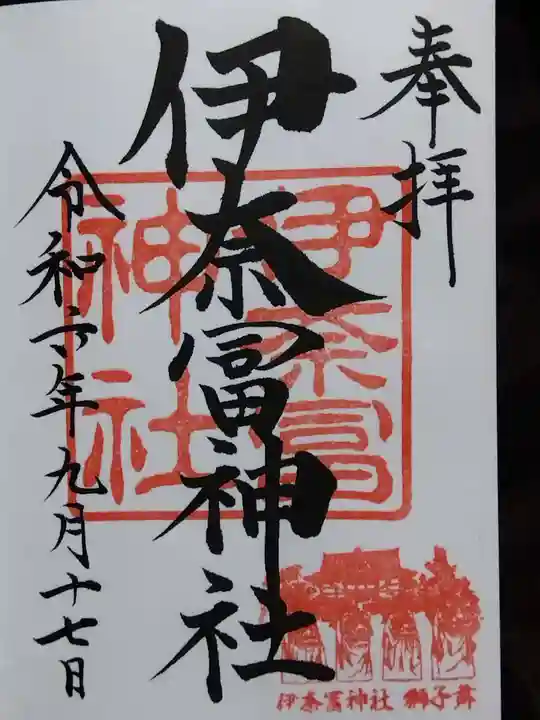 奉拝
伊奈冨神社
伊奈冨
神社
令和六年九月十七日
伊奈冨神社 獅子舞